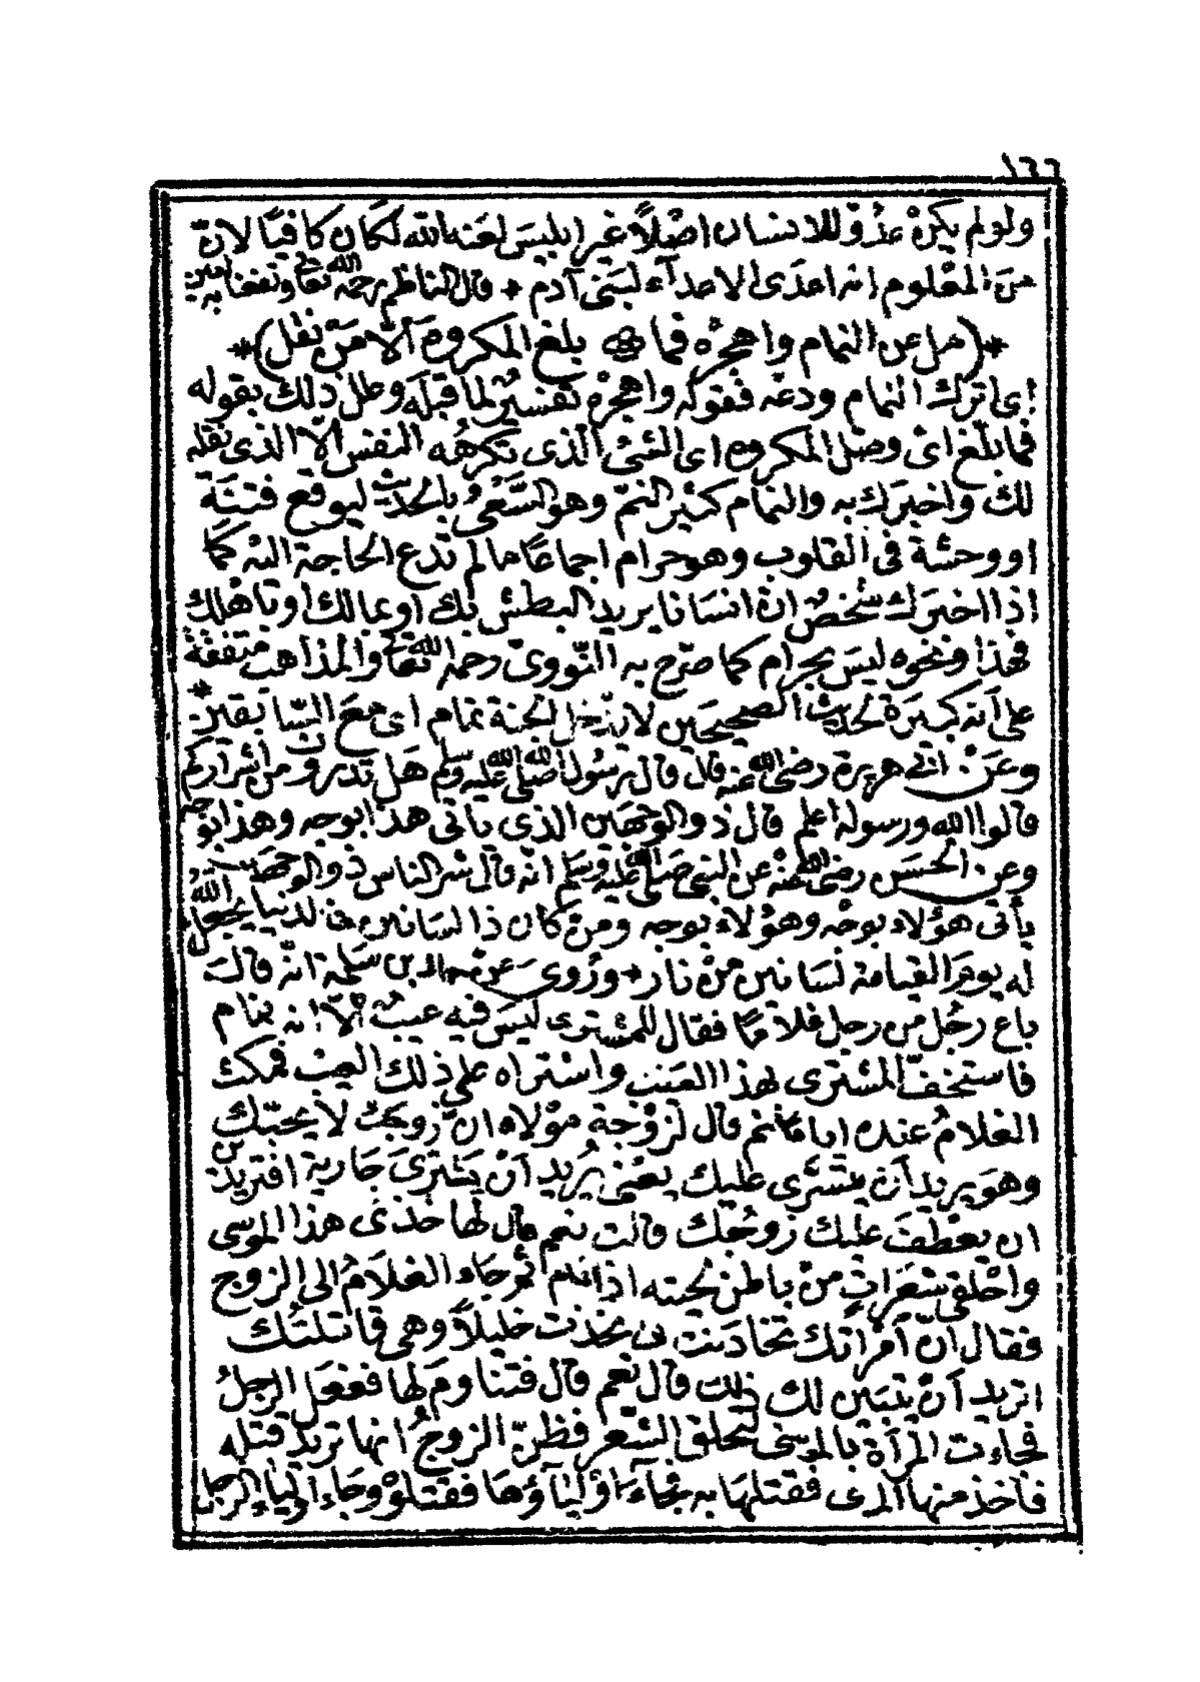 ١٦٦
ولو لم يكن عدوّ للانسان اصْلاً غير ابليس لعنه الله لكان كافيًا لانّ
من المعْلوم انه اعدَى الاعدآء لبَنى آدم * قال الناظم رحمه الله تعالى ونفعنا به امين
*(مل عن النمام واهجرْه فما ۞ بلغ المكروهَ الّا مَنْ نقل)*
اى اترك النمام ودعْه فقوله واهجرْه تفسيرٌ لما قبله وعلل ذلك بقوله
فما بلّغ اىْ وصَل المكروه اى الشئ الذى تكرهُه النفس الّا الذى نقله
لك واخبرك به والنمام كثير النمّ وهو السَّعْىُ بالحديث ليوقع فتنَة
او وحشة فى القلوب وهو حرام اجماعًا ما لم تدع الحاجة اليْه كمَا
اذا اخبرك شخصٌ انّ انسَانا يريد البطش بك او بمالك او باهْلك
فهذا ونحوه ليسَ بحرام كما صرّح به النّووىّ رحمه الله تعالى والمذاهب متفقةٌ
على أنه كبيرَة لحديث الصحيحَين لا يدْخل الجنة نمام اى معَ السّابقين *
وعَنْ ابى هريرة رضى الله عنه قال قال رسُول الله صلى الله عليه وسلم هَل تدرون من اشراركم
قالوا الله ورسوله اعلم قال ذو الوجهَين الذى ياتى هذا بوجه وهذا بوجه
وعن الحسَن رضى الله عنه عن النبى صَلى الله عليه وسَلم انّه قال شر الناس ذو الوجهَين
يأتى هؤلاء بوجْه وهؤلاء بوجه ومنْ كان ذا لسَانين فى الدنيا يجعلُ الله
له يومَ القيامة لسَانين منْ نار * ورُوى عن حماد بن سَلمة انّه قال
باع رجُل من رجل غلامًا فقال للمشترى ليسَ فيه عيبٌ الّا انه نمام
فاستخفّ المشترى لهذا العَيْب واشتراه على ذلك العيْب فمكث
الغلامُ عنده ايامًا ثم قال لزوْجة موْلاه انّ زوجك لا يحبّك
وهوَ يريد أن يتسَرّى عليك يعْنى يُريد أنْ يَشترىَ جَارية افتريدين
ان يعْطفَ عليك زوجُك قالت نعم قال لها خذى هذا الموسى
واحْلقى شعَراتٍ منْ باطن لحيته اذا نام ثم جَاء الغلَامُ الى الزوج
فقال انّ امْرأتك تخادنت اى تخذت خليلاً وهى قاتلتُك
اتريد أنْ يتبَين لك ذلك قال نعم قال فتنَاومَ لها ففعَل الرجلُ
فجاءت المرأة بالموسَى لتحلق الشعْر فظنّ الزوجُ انها تريد قتله
فاخذ منها الموسى فقتلهَا به فجَآءَ اوْليَآؤهَا فقتلوهُ وجَاء اوليَاء الرجل